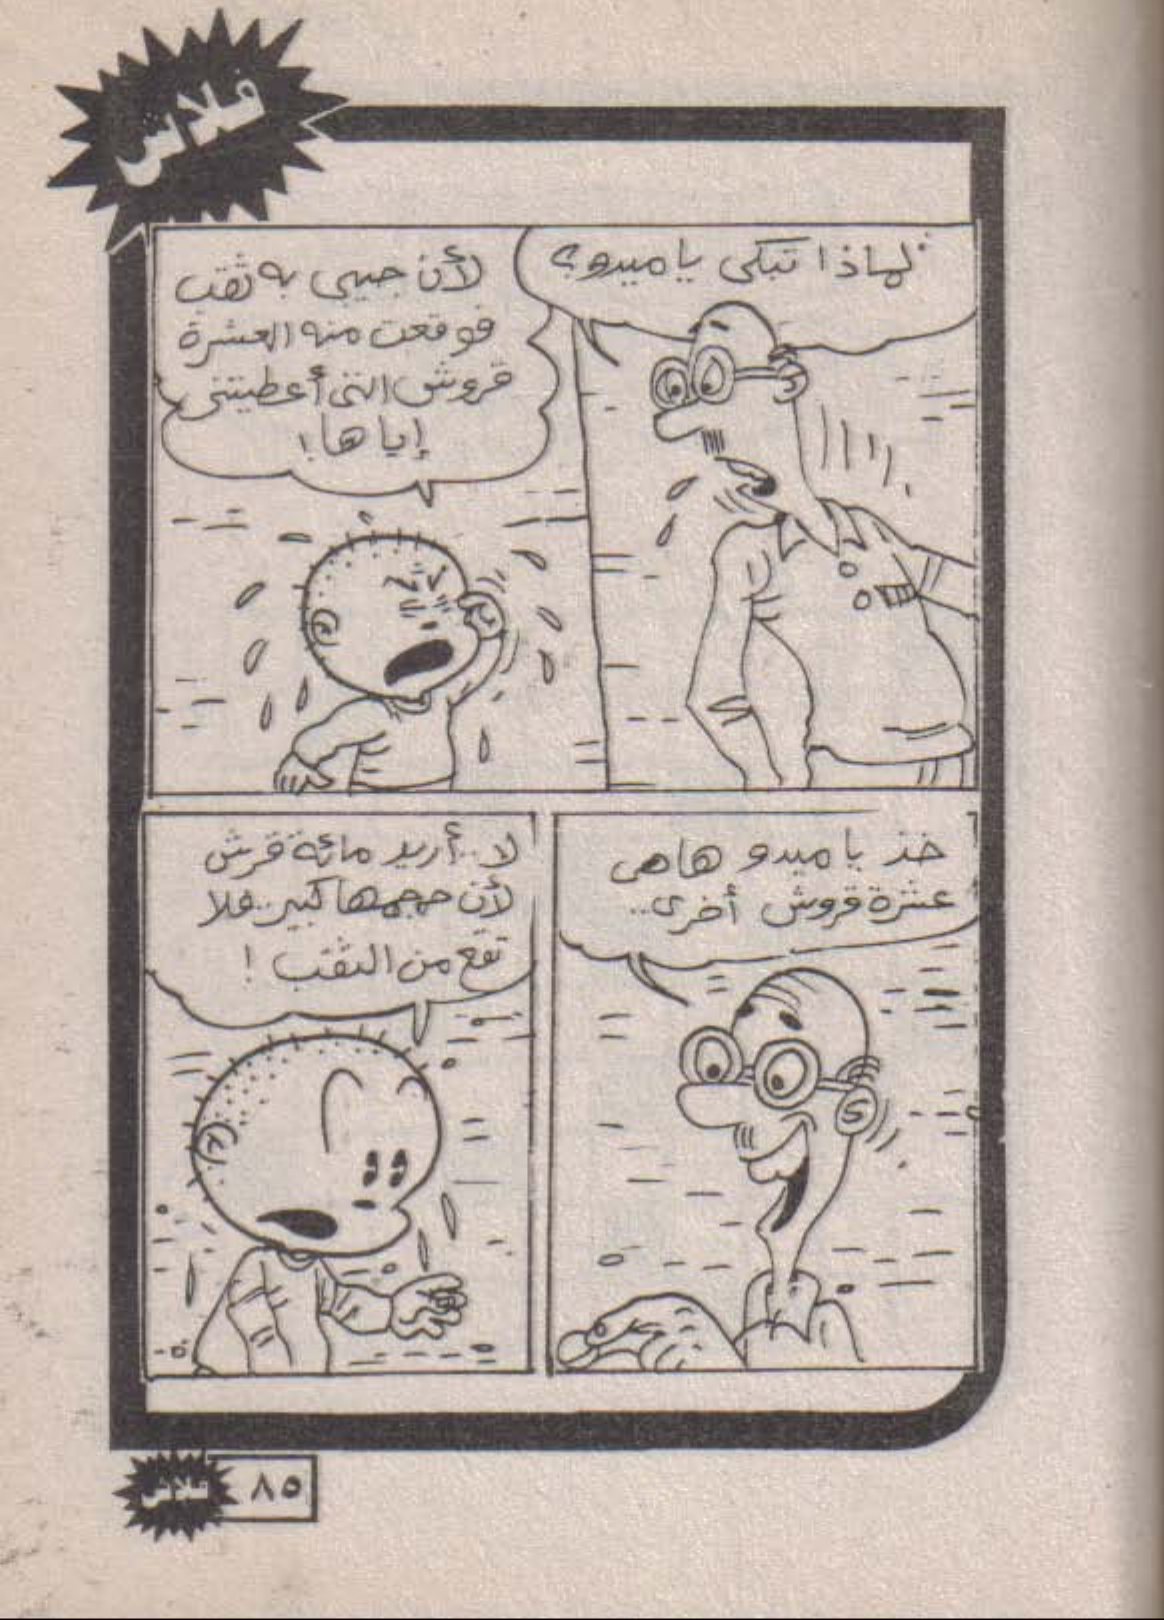 فلاش
لماذا تبكى يا ميدو؟
لأن جيبى به ثقب
فوقعت منه العشرة
قروش التى أعطيتنى
إياها!
خذ يا ميدو هاهى
عشرة قروش أخرى..
لا..أريد مائة قرش
لأن حجمها كبير..فلا
تقع من الثقب !
فلاش
٨٥